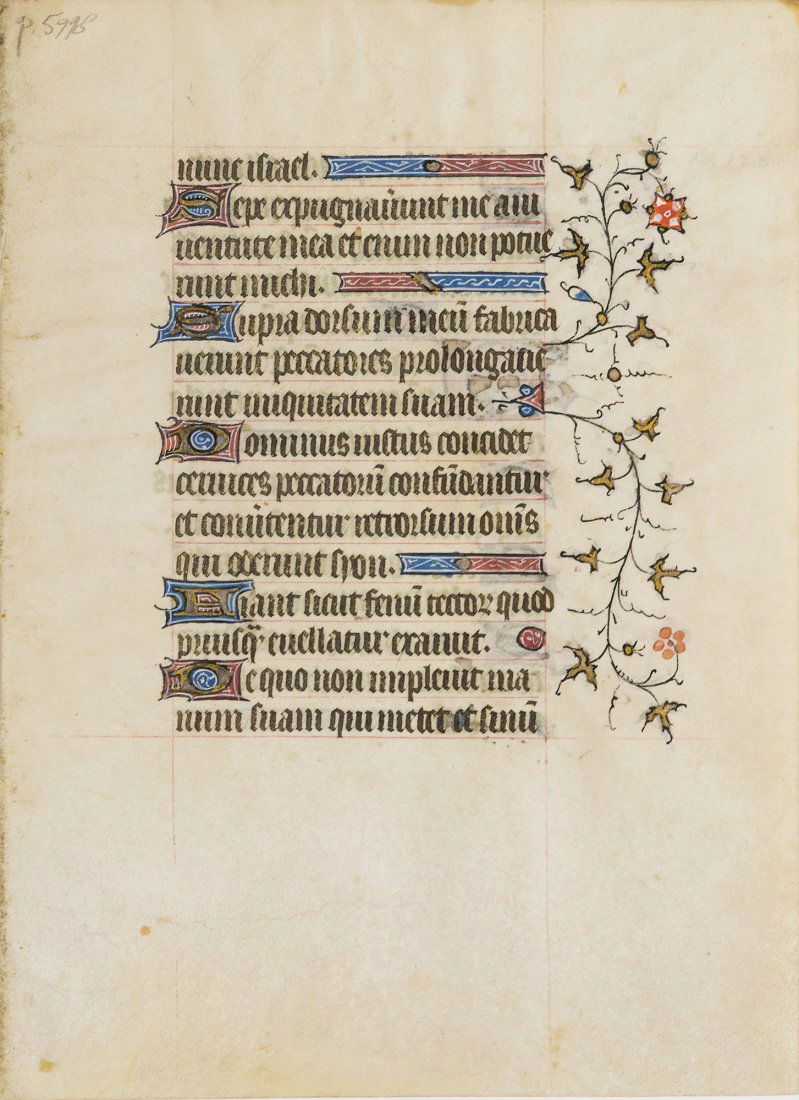 nunc israel.
Sepe expugnaūunt me a iu
uentute mea et enim non potue
runt michi.
Supra dorsum meū fabrica
uerunt peccatores prolongaue
runt iniquitatem suam.
Dominus iustus concidet
ceruices peccatorū confūdantur
et conūtentur retrorsum onīs
qui oderunt syon.
Fiant sicut fenū tector quod
priusq̄ euellatur exaruit.
De quo non impleuit ma
num suam qui metet et sinū